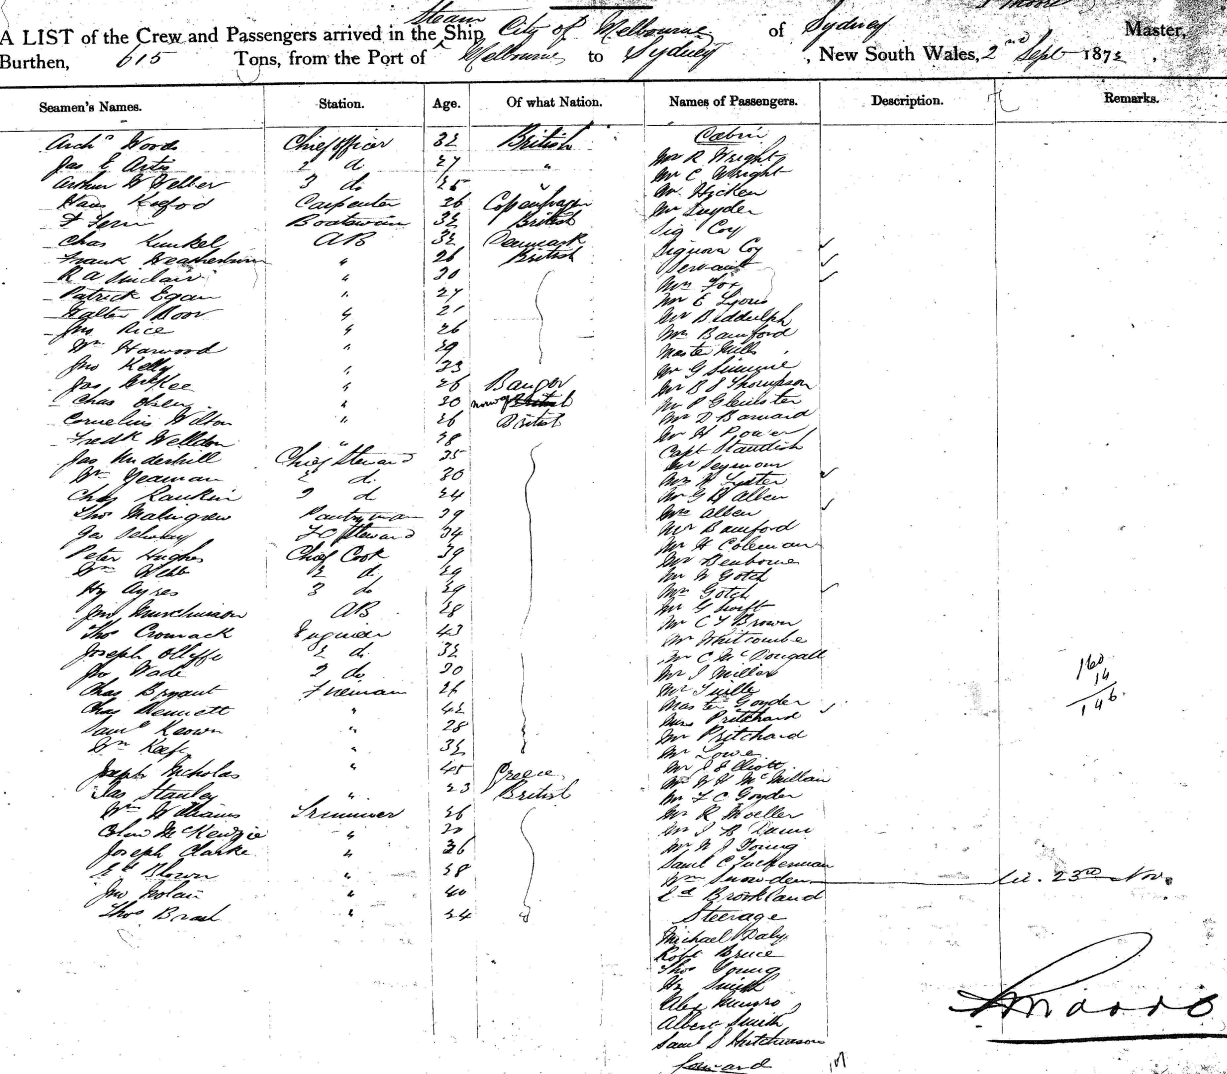 A LIST of the Crew and Passengers arrived in the Ship, Steam City of Melbourne of Sydney Master,
Burthen, 615 Tons, from the Port of Melbourne to Sydney, New South Wales, 2nd Sept 187
Seamen's Names. Station. Age. Of what Nation. Names of Passengers. Description. Remarks.
Cabin
Archd Woods Chief officer 32 British Mr R. Wright
Jas E Artis 2 d 27 " Mr C Wright
Arthur W Webber 3 do 25 " Mr Hicken
Hans Carpenter 26 Copenhagen Mr Snyder
Boatswain 32 British Sig Coy
Chas Kunkel AB 32 Denmark Signora Coy
Frank " 26 British Servant
R A Sinclair " 30 Mrs Fox
Patrick Egan " 27 Mr E Lyons
Walter Boor " 21 Mr Biddulph
Jno Rice " 26 Mrs Bamford
Wm Harwood " 29 Master Mills
Jno Kelly " 23 Mr G
Jas McKee " 26 Bangor Mr B S Thompson
Chas Olsen " 30 Norway Mr P
Cornelius Wilton " 26 British Mr D Barnard
Fredk Welldon " 28 Mr H Power
Jas Underhill Chief Steward 35 Capt Standish
Wm Yeaman 2 d. 30 Mr Seymour
Chas Rankin 3 d 24 Mrs Lyster
Thos Pantryman 39 Mr G B Allen
Geo FC Steward 34 Mrs Allen
Peter Hughes Chief Cook 39 Mr Bamford
Wm Webb 2 d. 29 Mr H Coleman
Hy Ayres 3 do 29 Mr Denbowe
Jno Murchison AB 28 Mr W Gotch
Thos Cromack Engineer 43 Mrs Gotch
Joseph Olliffe 2 do. 32 Mr G Swift
Jno Wade 3 do 30 Mr C T Brown
Chas Bryant Fireman 26 Mr Whitcombe
Chas Bennett " 42 Mr C McDougall
Saml Keown " 28 Mr J Miller
Wm Keefe " 32 Mr Tuille
Joseph Nicholas " 45 Greece Master Goyder
Jas Stanley " 23 British Mrs Pritchard
Wm Williams Trimmer 26 Mr Pritchard
Colin McKenzie " 20 Mr Lowe
Joseph Clarke " 36 Mr J Elliott
Ed Blown " 28 Mr W H McMillan
Jno Nolan " 40 Mr F C Goyder
Thos Brash " 24 Mr R Moeller
Mr J B Dunn
Mr W J Young
Saml C Tuckerman
Wm Snowden 23rd Nov.
Ed Brookland
Steerage
Michael Daly
Robt Bruce
Thos Young
Hy Smith
Alex Munro
Albert Smith
Saml S Hutchinson
forward
160
14
146